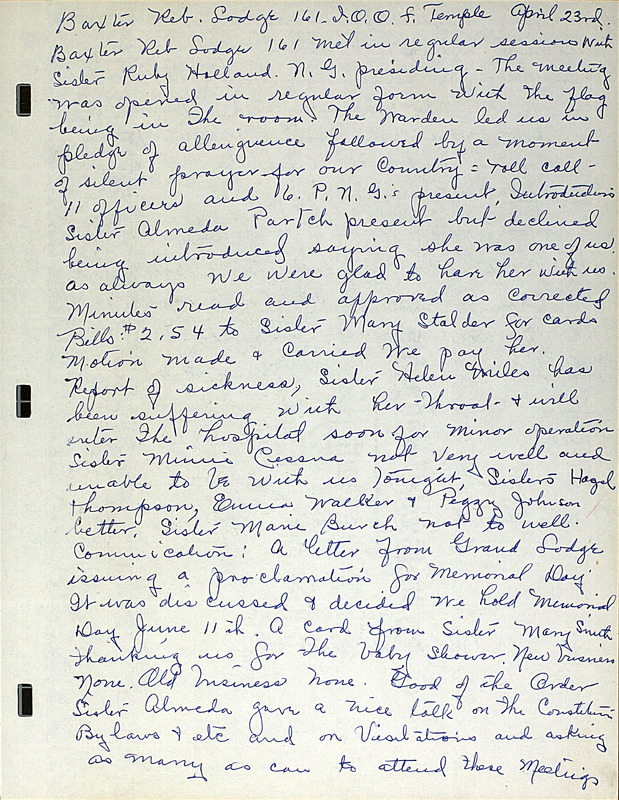 Baxter Reb. Lodge 161-I.O.O.F. Temple April 23rd.
Baxter Reb Lodge 161 met in regular session with
Sister Ruby Holland. N.G. presiding - The meeting
was opened in regular form with the flag
being in the room. The Warden led us in
pledge of allengience followed by a moment
of silent prayer for our Country = roll call -
11 officers and 16. P.N.G.'s present, Introductions
Sister Almeda Partch present but declined
being introduced saying she was one of us.
as always we were glad to have her with us.
Minutes read and approved as corrected
Bills: $2,54 to Sister Mary Stalder for cards
Motion made & carried we pay her.
Report of sickness, Sister Helen Miles has
been suffering with her - throat - & will
enter the hospital soon for minor operation
Sister Minnie Cessna not very well and
unable to be with us tonight, Sisters Hazel
Thompson, Emma Walker & Peggy Johnson
better. Sister Marie Burch not to well.
Commication: A letter from Grand Lodge
issuing a proclamation for Memorial Day
It was discussed & decided we hold Memorial
Day June 11th. A card from Sister Mary Smith
thanking us for the baby shower. New business
None. Old business None. Good of the Order
Sister Almeda gave a nice talk on the Constitution
Bylaws & etc and on Visitations and asking
as many as can to attend these Meetings